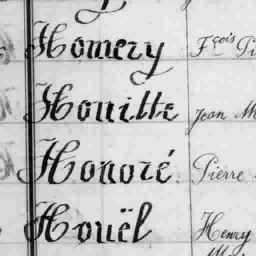 Homery Fçois Pi
Houitte Jean M
Honoré Pierre
Houël Henry